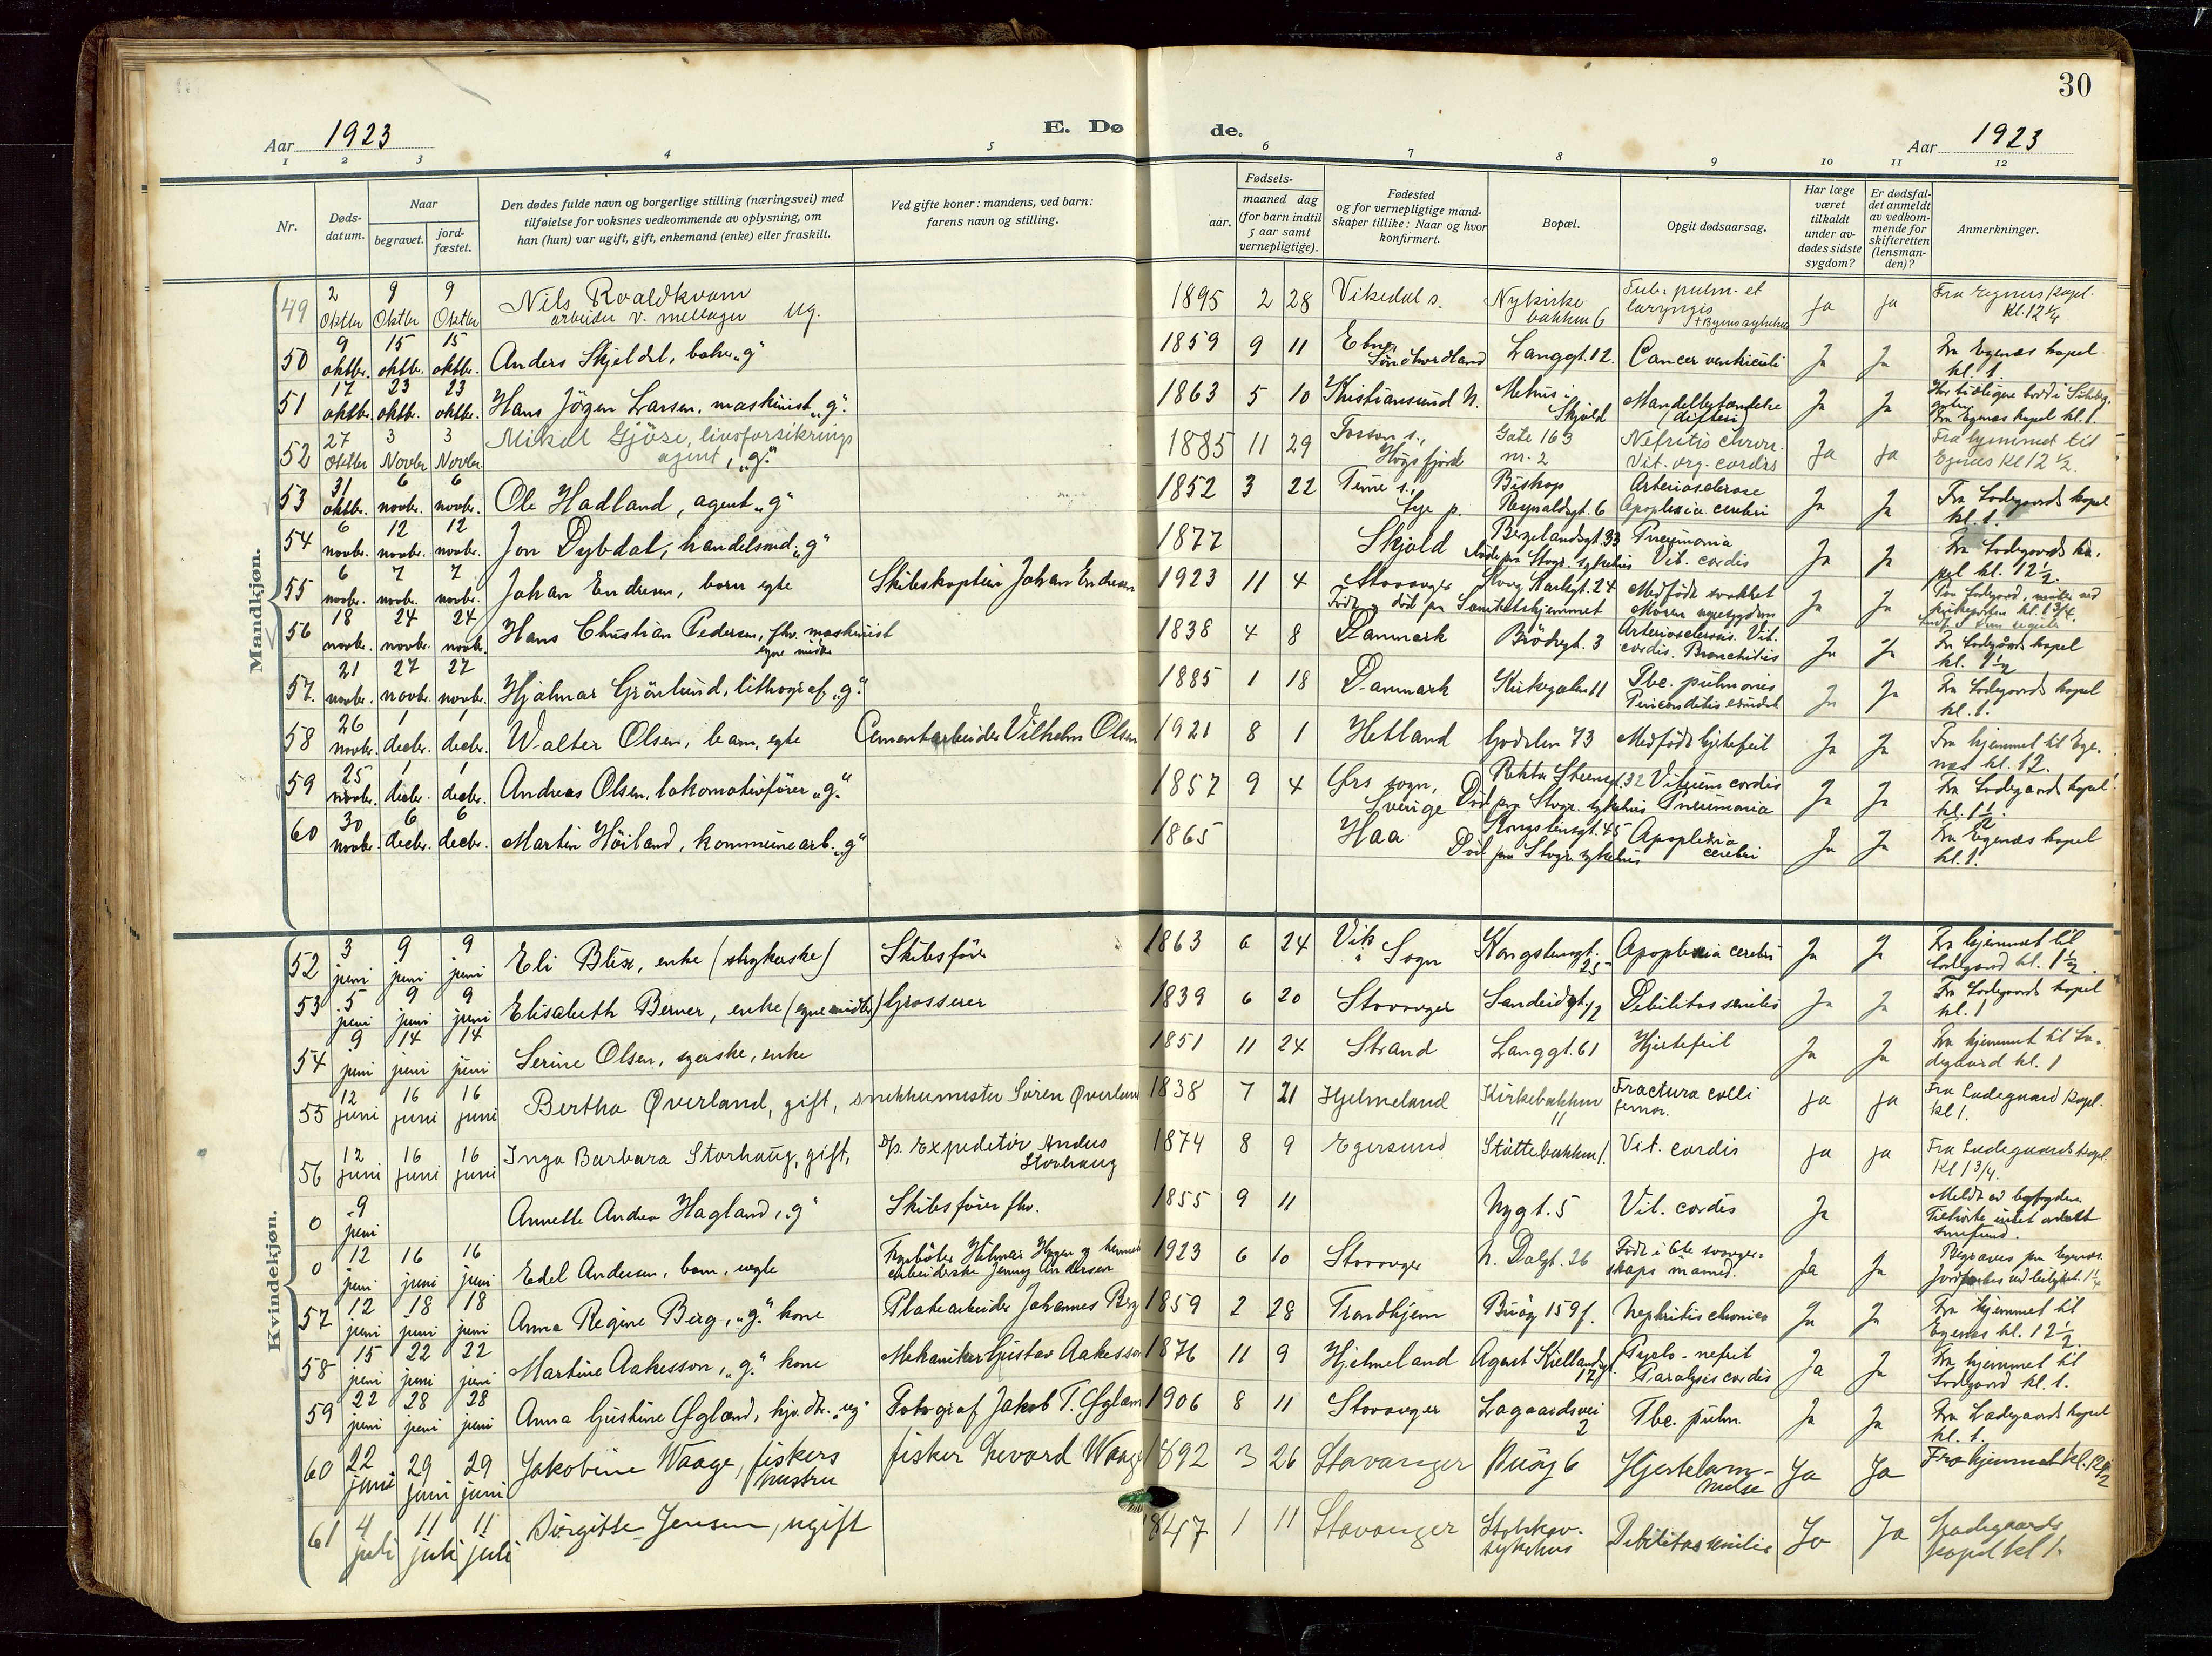 30
Aar 1923
E. Dø de.
Aar 1923
1 2 3 4 5 6 7 8 9 10 11 12
Nr.
Døds-datum.
Naar
begravet.
jord-fæstet.
Den dødes fulde navn og borgerlige stilling (næringsvei) med
tilføielse for voksnes vedkommende av oplysning, om
han (hun) var ugift, gift, enkemand (enke) eller fraskilt.
Ved gifte koner: mandens, ved barn:
farens navn og stilling.
Fødsels-
aar. maaned dag
(for barn indtil
5 aar samt
vernepligtige).
Fødested
og for vernepligtige mand-
skaper tillike: Naar og hvor
konfirmert.
Bopæl.
Opgit dødsaarsag.
Har læge
været
tilkaldt
under av-
dødes sidste
sygdom?
Er dødsfal-
det anmeldt
av vedkom-
mende for
skifteretten
(lensman-
den)?
Anmerkninger.
Mandkjøn.
49 2 Oktbr 9 Oktbr 9 Oktbr Nils Roaldkvam arbeider v. ug. 1895 2 28 Vikedal s. Nykirke bakken 6 Tub. pulm. et laryngis ja ja Fra Egenes kapel kl. 12 1/4
50 9 oktbr. 15 oktbr. 15 oktbr. Anders Skjeldal, "g" 1859 9 11 Etne, Søndhordland Langgt. 12. Cancer ventriculi Ja Ja Fra Egenæs kapel kl. 1.
51 17 oktbr. 23 oktbr. 23 oktbr. Hans Jörgen Larsen, maskinist "g". 1863 5 10 Kristiansund N. Skjold Mandelbetændelse (difteri) Ja Ja Fra Egenæs kapel kl. 1.
52 27 Oktbr 3 Novbr 3 Novbr. Mikal Gjöse, livsforsikrings agent, "g." 1885 11 29 Fossan s., Høgsfjord Gate 163 nr. 2 Nefritis chron. Vit. org. cordis Ja ja Fra hjemmet til Egenes kl 12 1/2.
53 31 oktbr. 6 novbr. 6 novbr. Ole Hadland, agent "g" 1852 3 22 Time s., Lye p. Biskop Reynaldsgt. 6 Arteriosclerose Apoplexia cerebri Ja Ja Fra Lodegaards kapel kl. 1.
54 6 novbr. 12 novbr. 12 novbr. Jon Dybdal, handelsmd. "g" 1877 Skjold Bergelandsgt. 33 Døde paa Stvgr. sykehus Pneumonia Vit. cordis Ja Ja Fra Lodegaards kapel kl. 12 1/2.
55 6 novbr. 7 novbr. 7 novbr. Johan Endresen, barn egte Skibskaptein Johan Endresen 1923 11 4 Stavanger Karlsgt. 24 Født og død paa Sanitetshjemmet Medfødt svakhet Moren nyresygdom Ja Ja
56 18 novbr. 24 novbr. 24 novbr. Hans Christian Pedersen, fhv. maskinist egne midler 1838 4 8 Danmark Brödregt. 3 Arteriosclerosis. Vit. cordis. Bronchitis Ja Ja Fra Lodegaards kapel kl. 1 1/2
57. 21 novbr. 27 novbr. 27 novbr. Hjalmar Grönlund, lithograf, "g." 1885 1 18 Danmark Kirkegaten 11 Tbc. pulmonis Ja Ja Fra Lodegaards kapel kl. 1.
58 26 novbr. 1 decbr. 1 decbr. Walter Olsen, barn, egte Cementarbeider Vilhelm Olsen 1921 8 1 Hetland Godalen 73 Medfødt hjertefeil Ja Ja Fra hjemmet til Egenæs kl. 12.
59 25 novbr. 1 decbr. 1 decbr. Andreas Olsen, lokomotivfører "g." 1857 9 4 Ørs sogn, Sverige 32 Død paa Stvgr. sykehus Vitium cordis Pneumonia Ja Ja Fra Lodegaards kapel kl. 1 1/2.
60 30 novbr. 6 decbr. 6 decbr. Martin Höiland, kommunearb. "g" 1865 Haa Kongstensgt. 45 Død paa Stvgr. sykehus Apoplexia cerebri Ja Ja Fra Egenæs kapel kl. 1.
Kvindekjøn.
52 3 juni 9 juni 9 juni Eli Blix, enke (strykerske) Skibsfører 1863 6 24 Vik i Sogn Kongstensgt. 25 Apoplexia cerebri Ja Ja Fra hjemmet til Lodegaard kl. 1 1/2.
53 5 juni 9 juni 9 juni Elisabeth Berner, enke (egne midler) Grosserer 1839 6 20 Stavanger Sandeidgt. 12 Debilitas senilis Ja Ja Fra Lodegaards kapel kl. 1
54 9 juni 14 juni 14 juni Serine Olsen, syerske, enke 1851 11 24 Strand Langgt. 61 Hjertefeil Ja Ja Fra hjemmet til Lodegaard kl. 1
55 12 juni 16 juni 16 juni Bertha Øverland, gift, snekkermester Sören Øverland 1838 7 21 Hjelmeland Kirkebakken 11 Fractura colli femor. ja ja Fra Ladegaard kapel. kl 1.
56 12 juni 16 juni 16 juni Inga Barbara Storhaug, gift, D/s. Expeditör Anders Storhaug 1874 8 9 Egersund Støttebakken 1. Vit. cordis ja ja Fra Ladegaards kapel. kl 1 3/4.
0 9 juni Annette Andrea Hagland, "g" Skibsfører fhv. 1855 9 11 Nygt. 5 Vit. cordis Ja
0 12 juni 16 juni 16 juni Edel Andersen, barn, uegte Fyrbøter Hilmar Hagen og arbeiderske Jenny Andersen 1923 6 10 Stavanger N. Dalgt. 26 Født i 6te svangerskaps maaned. Ja Ja
57 12 juni 18 juni 18 juni Anna Regine Berg, "g." kone Platearbeider Johannes Berg 1859 2 28 Trondhjem Buöy 159 f. Nephritis chronica Ja Ja Fra hjemmet til Egenæs kl. 12 1/2.
58 15 juni 22 juni 22 juni Martine Aakesson, "g." kone Mekaniker Gustav Aakesson 1876 11 9 Hjelmeland Agent Kiellandsgt. Pyelo-nefrit Paralysis cordis Ja Ja Fra hjemmet til Lodegaard kl. 1.
59 22 juni 28 juni 28 juni Anna Gustine Øgland, hjv. dtr. "ug" Fotograf Jakob T. Øgland 1906 8 11 Stavanger Lagaardsvei 2 Tbc. pulm. Ja Ja Fra Ladegaards kapel kl. 1.
60 22 juni 29 juni 29 juni Jakobine Waage, fiskers hustru fisker Waage 1892 3 26 Stavanger Buöy 6 Hjertelammelse Ja Ja Fra hjemmet kl. 12 1/2
61 4 juli 11 juli 11 juli Birgitte Jensen, ugift 1847 1 11 Stavanger sykehus Debilitas senilis Ja Ja Ladegaards kapel kl 1.